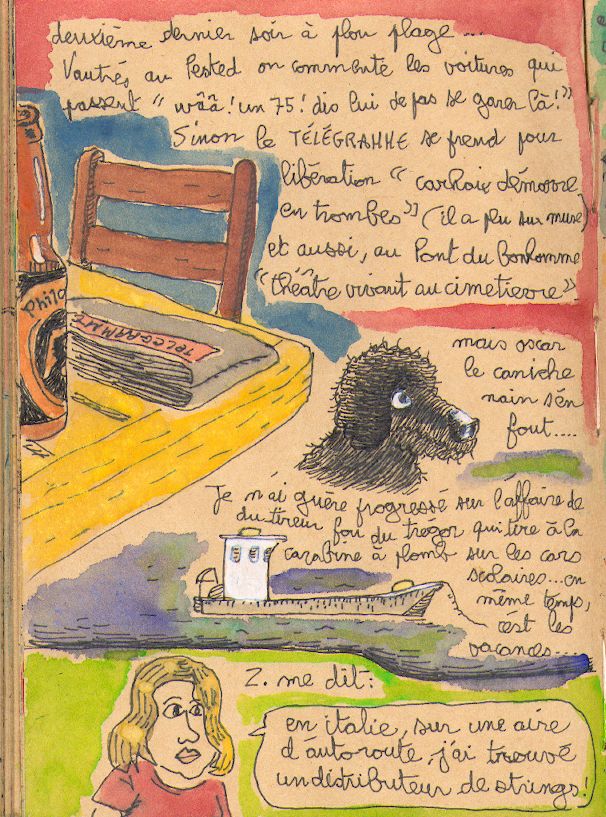 deuxième dernier soir à plou plage...
Vautrés au Pested on commente les voitures qui
passent " wââ! un 75! dis lui de pas se garer là!"
Sinon le TÉLÉGRAMME se prend pour
libération " carhaix démarre
en trombes" (il a plu sur muse)
et aussi, au Pont du Bonhomme
"théâtre vivant au cimetierre"
Phila
TELEGRAMME
mais oscar
le caniche
nain s'en
fout....
Je n'ai guère progressé sur l'affaire de
du tireur fou du trégor qui tire à la
carabine à plomb sur les cars
scolaires...en
même temps,
c'est les
vacances...
Z. me dit:
en italie, sur une aire
d'autoroute, j'ai trouvé
un distributeur de strings!